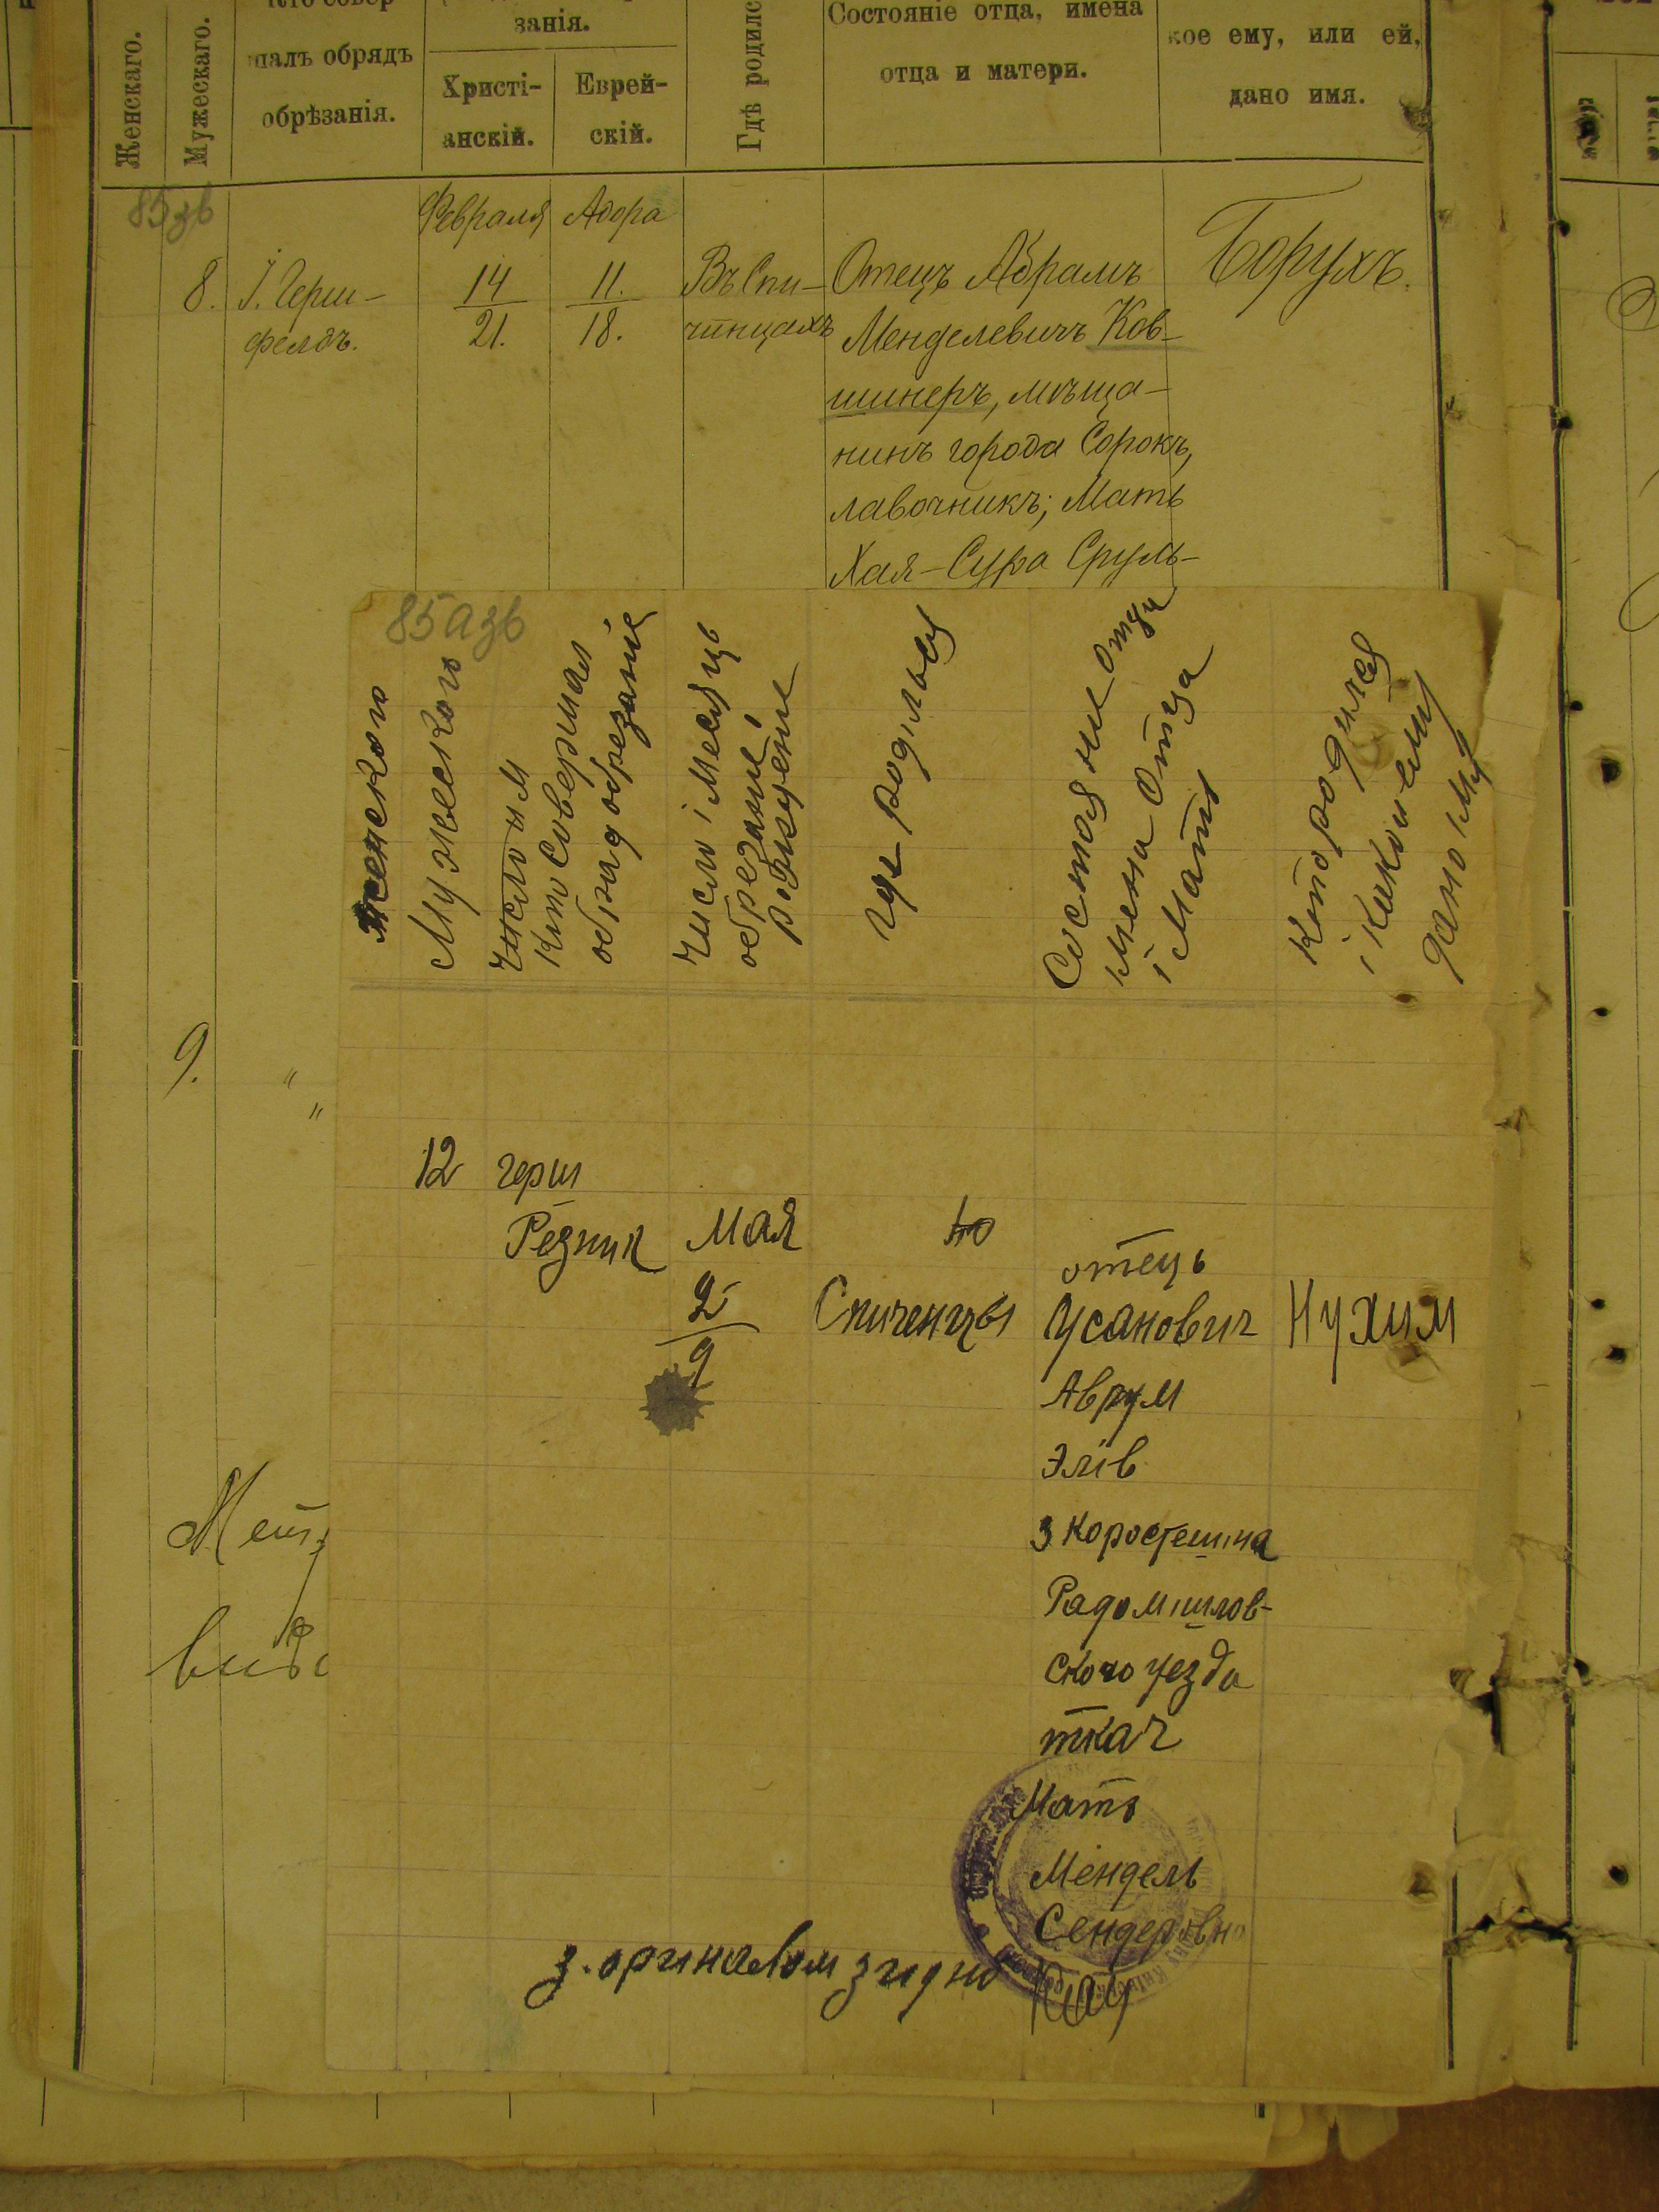 Женскаго.
Мужескаго.
шалъ обрядъ
обрѣзанія.
занія.
Христі-
анскій.
Еврей-
скій.
Гдѣ родился
Состояніе отца, имена
отца и матери.
кое ему, или ей,
дано имя.
85зв
Февраля Адора
8. І. Герш-
фелдъ.
14
21.
11.
18.
Въ Спи-
чинцахъ
Отецъ Абрамъ
Менделевичъ Ков-
шинеръ, мѣща-
нинъ города Сорокъ,
лавочникъ; Мать
Хая-Сура Сруль-
Борухъ.
85а зв
женского
Мужеского
Число им
Кто Совершал
обряд обрезаніе
Число і Месяць
обрезаніе і
рожценіе
где роділься
Состояние отца
імена Отца
і Мать
Кто родился
і Какои ему
дано імя
9. " "
12 герш
Резник
Мая
2
9
Спиченцы
отець
Усанович
Аврум
Элів
з Коростешина
Радомишлов-
ского уезда
ткач
Мать
Мендель
Сендеровна
Нухим
з. оригиналом згидно